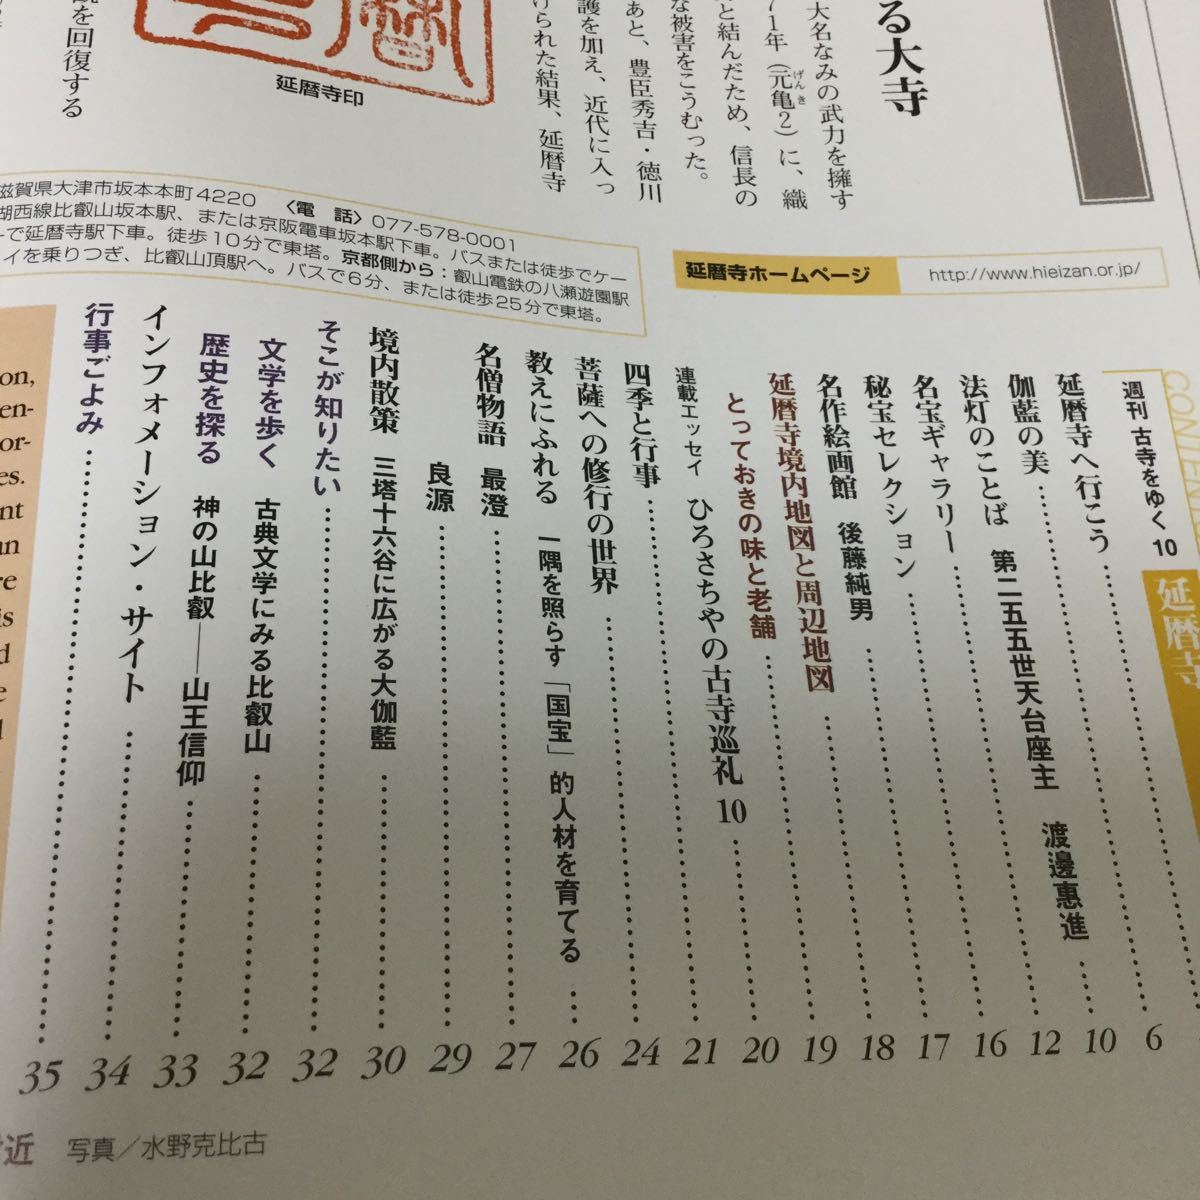 る大寺
大名なみの武力を擁す
71年（元亀2）に、織
と結んだため、信長の
な被害をこうむった。
あと、豊臣秀吉・徳川
護を加え、近代に入っ
けられた結果、延暦寺
げんき
延暦寺印
を回復する
滋賀県大津市坂本本町4220 〈電 話〉077-578-0001
湖西線比叡山坂本駅、または京阪電車坂本駅下車。バスまたは徒歩でケー
ーで延暦寺駅下車。徒歩10分で東塔。京都側から：叡山電鉄の八瀬遊園駅
イを乗りつぎ、比叡山頂駅へ。バスで6分、または徒歩25分で東塔。
延暦寺ホームページ
http://www.hieizan.or.jp/
週刊 古寺をゆく 10
延暦寺
延暦寺へ行こう
伽藍の美 6
法灯のことば 第二五五世天台座主 渡邊惠進 10
名宝ギャラリー 12
秘宝セレクション 16
名作絵画館 後藤純男 17
延暦寺境内地図と周辺地図 18
とっておきの味と老舗 19
連載エッセイ ひろさちやの古寺巡礼 10 20
四季と行事 21
菩薩への修行の世界 24
教えにふれる 一隅を照らす「国宝」的人材を育てる 26
名僧物語 最澄 27
良源 29
境内散策 三塔十六谷に広がる大伽藍 30
そこが知りたい 32
文学を歩く 古典文学にみる比叡山 32
歴史を探る 神の山比叡――山王信仰 33
インフォメーション・サイト 34
行事ごよみ 35
近 写真／水野克比古